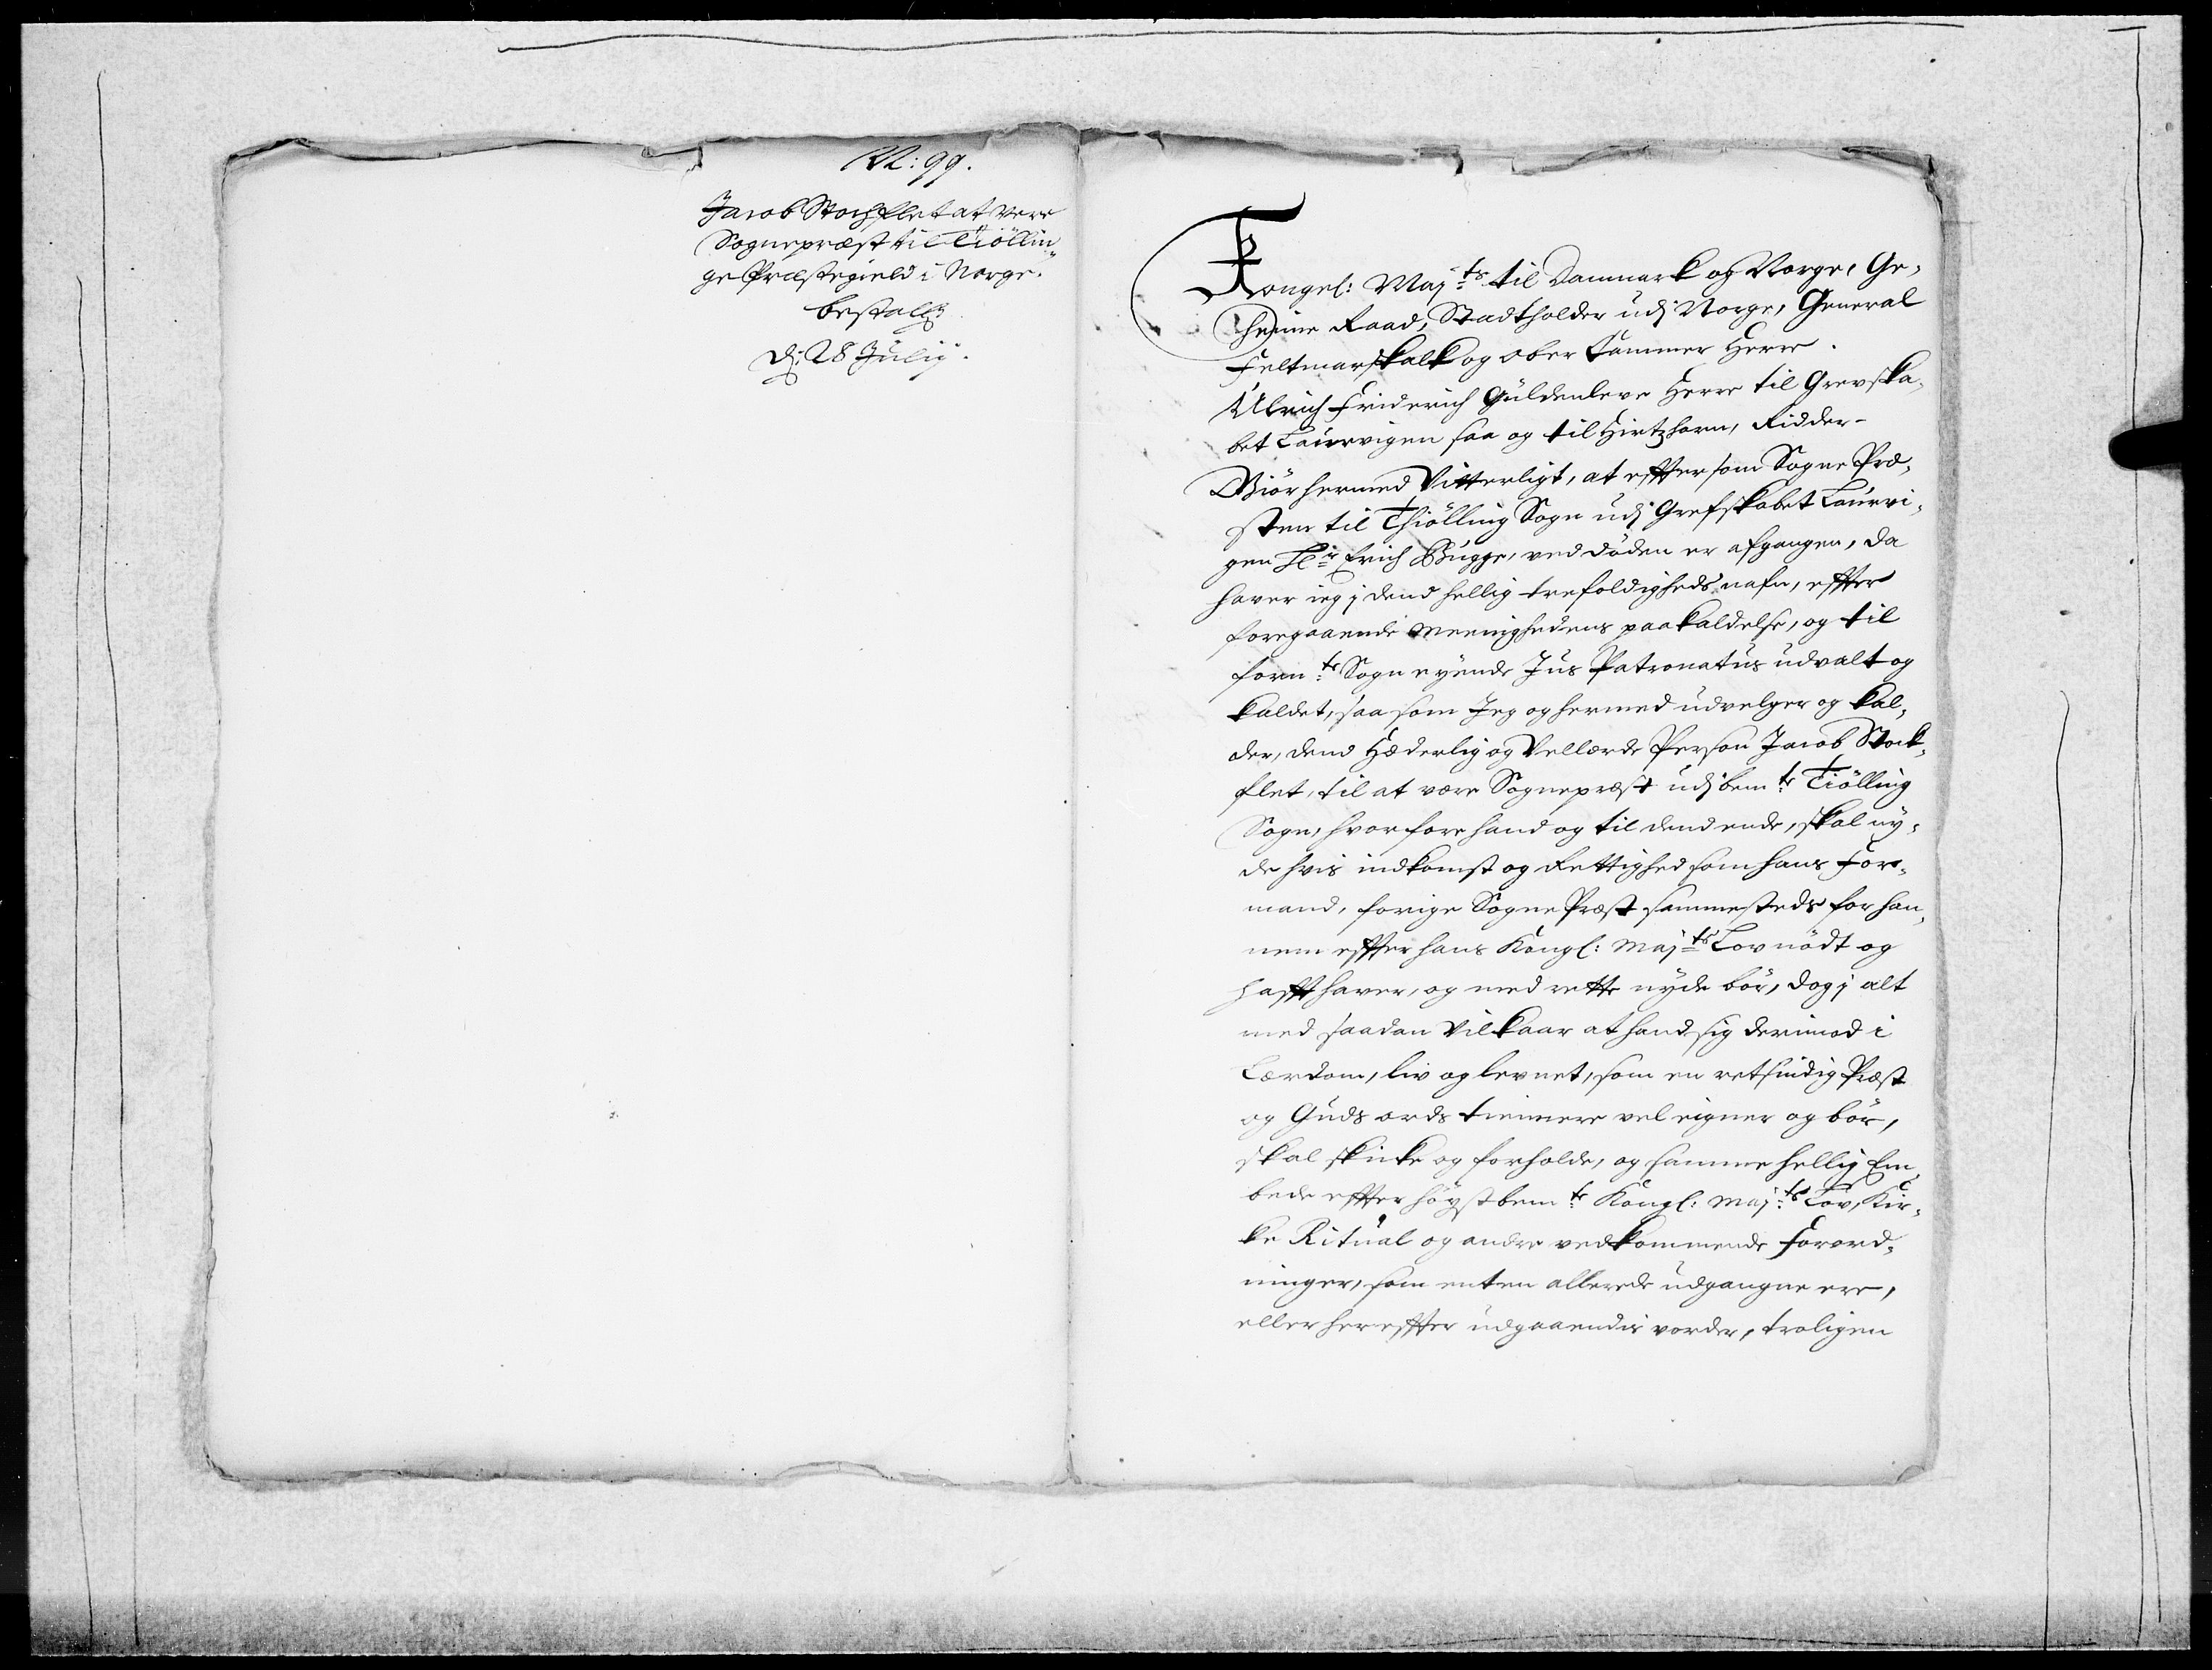 N: 99.
Jacob Stochflet at Være
Sognepræst til Tiöllin„
ge Præstegield i Norge.
bestalg
d: 28 Julij.
Kongel: Maj:ts til Danmark og Norge, Ge„
heime Raad, Stadtholder udj Norge, General
Feltmarskalk og ober Cammer Herre.
Ulrich Friderich Güldenleve Herre til Grevska„
bet Laurvigen saa og til Hirtzhorn, Ridder-
Giör hermed Vitterligt, at effter som Sogne Præ„
sten til Thiölling Sogn udj Grefskabet Laurvi„
gen Hr: Erich Bugge, ved döden er afgangen, da
haver ieg j dend hellig trefoldigheds nafn, effter
foregaaende Meenighedens paakaldelse, og til
forn:te Sogn eyende Jus Patronatus udvalt og
kaldet, saa som Jeg og hermed udvelger og kal„
der, dend Hæderlig og Vellærde Person Jacob Stock„
flet, til at være Sognepræst udj bem:te Tiölling
Sogn, hvorfore hand og til dend ende, skal ny„
de hvis indkomst og Rettighed som hans For„
mand, forige Sogne Præst sammesteds for han„
nem effter hans Kongl: Maj:ts Lov nödt og
hafft haver, og med rette nyde bör, dog j alt
med saadan Vilkaar at hand sig derimod i
Lærdom, liv og levnet, som en retsindig Præst
og Guds ords tiennere vel eigner og bör,
skal skicke og forholde, og samme hellig Em„
bede effter höystbem:te Kongl: Maj:ts Lov, Kir„
ke Ritual og andre vedkommende Forord„
ninger, som enten allerede udgangne ere,
eller hereffter udgaaendis vorder, troligen